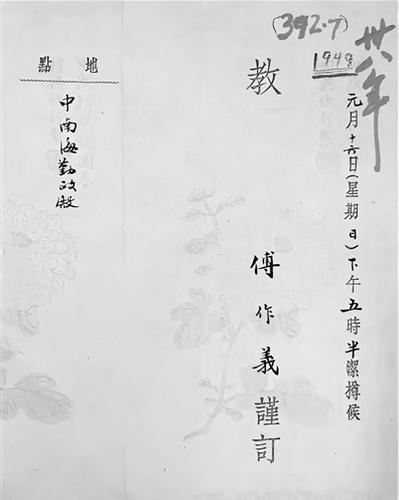 (392·7)
卅八年
1949
元月十六日(星期日)下午五時半潔樽候
教
傅作義謹訂
地點
中南海勤政殿